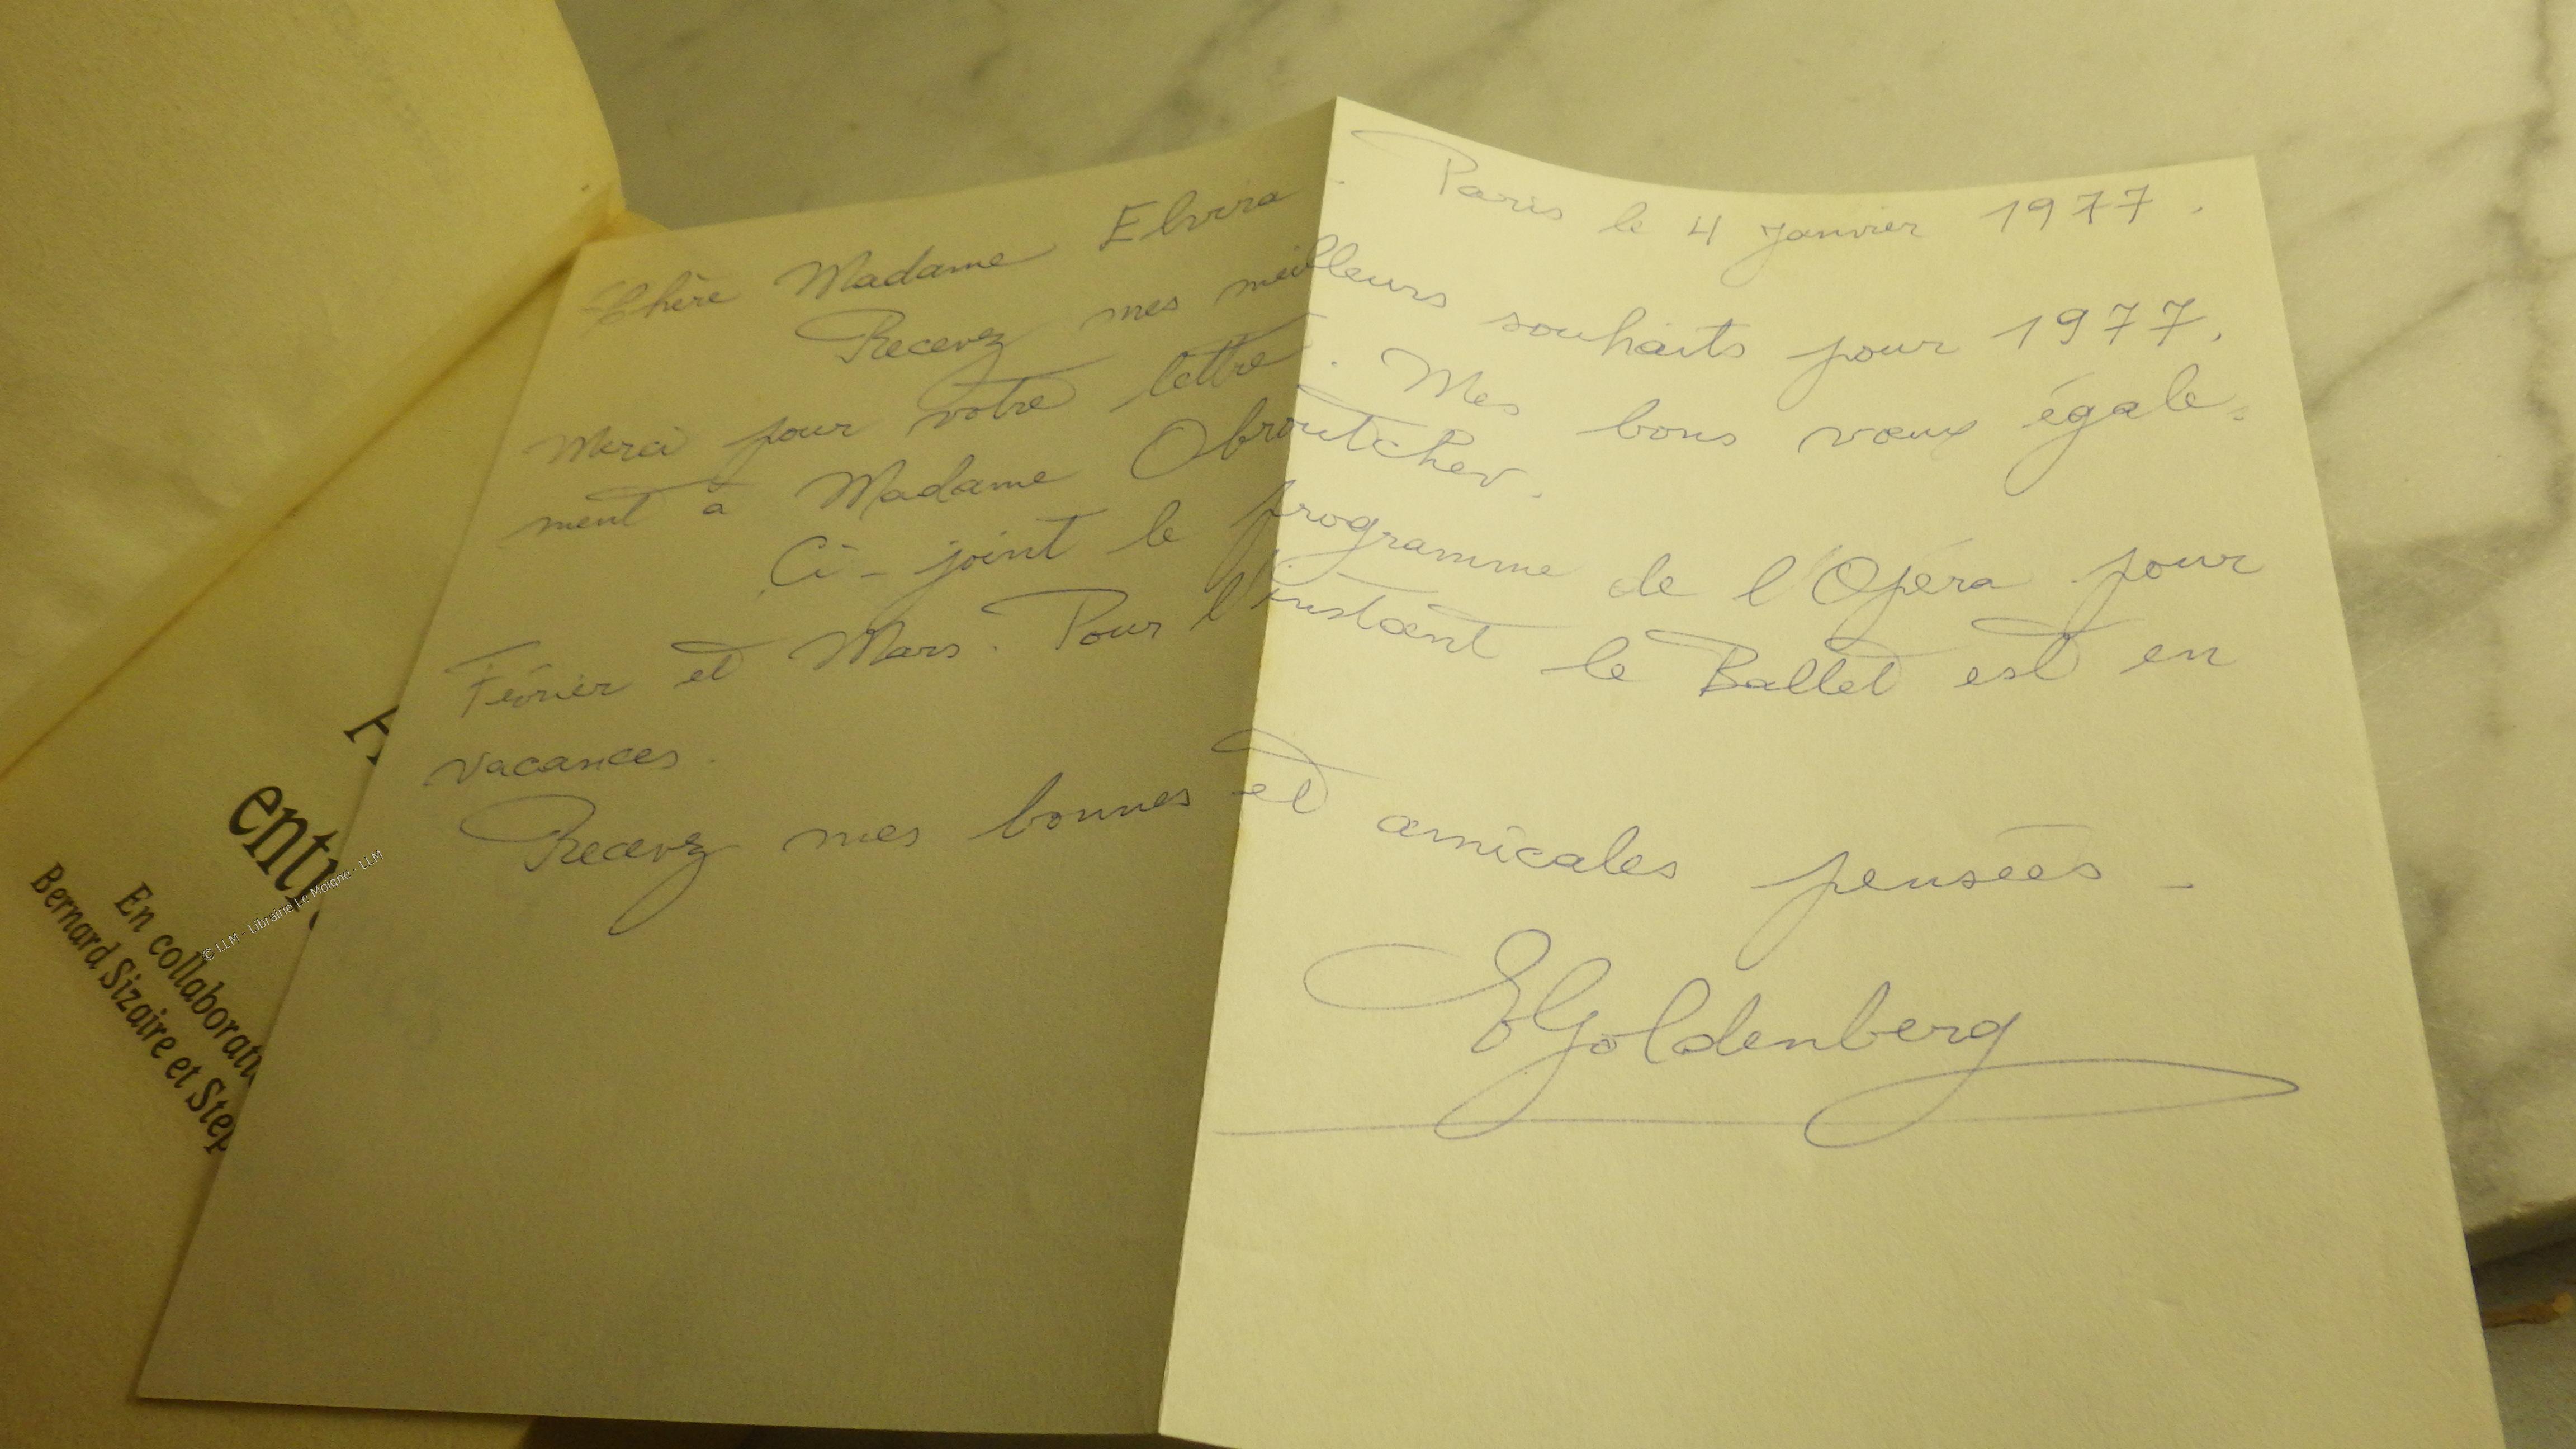 Paris le 4 janvier 1977.
Chère Madame Elvira.
Recevez mes meilleurs souhaits pour 1977.
Merci pour votre lettre. Mes bons vœux égale-
ment à Madame Obroutchev.
Ci-joint le programme de l'Opéra pour
Février et Mars. Pour l'instant le Ballet est en
vacances.
Recevez mes bonnes et amicales pensées -
Goldenberg
entr
En collaborati
Bernard Sizaire et Step
© LLM - Librairie Le Moigne - LLM